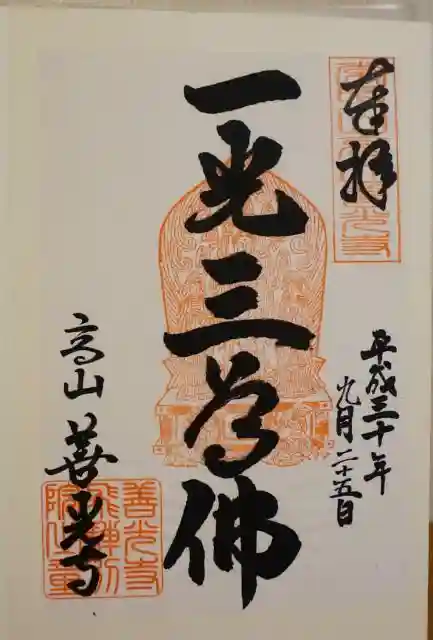 奉拝
平成三十年
九月二十五日
一光三尊佛
高山 善光寺